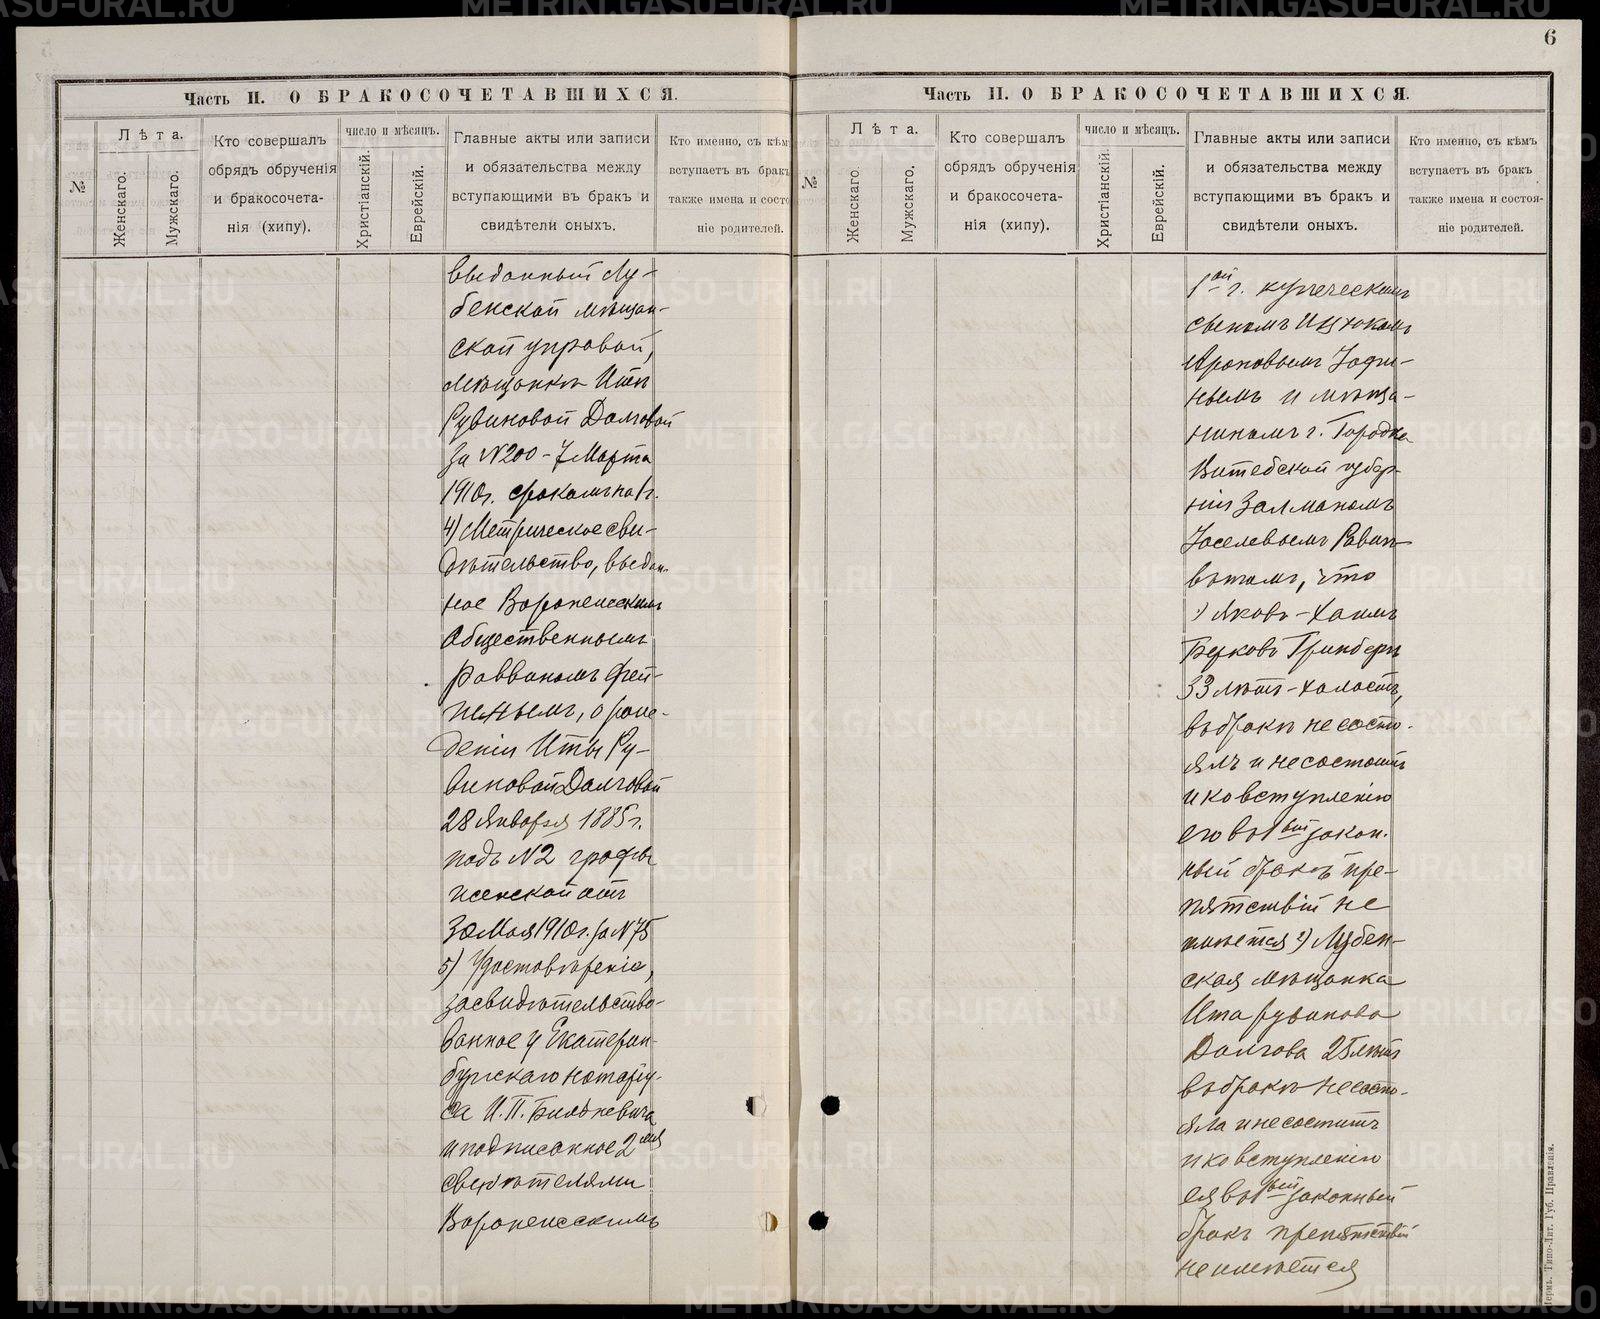 6
Часть II. О БРАКОСОЧЕТАВШИХСЯ.
№
Лѣта.
Женскаго.
Мужскаго.
Кто совершалъ
обрядъ обрученія
и бракосочета-
нія (хипу).
число и мѣсяцъ.
Христіанскій.
Еврейскій.
Главные акты или записи
и обязательства между
вступающими въ бракъ и
свидѣтели оныхъ.
Кто именно, съ кѣмъ
вступаетъ въ бракъ
также имена и состо
ніе родителей.
выданный Лу-
бенской мѣщан-
ской управой,
мѣщанкѣ Итѣ
Рувиновой Долговой
за №200 - 7 Марта
1910г. срокомъ на 1г.
4) Метрическое сви-
дѣтельство, выдан-
ное Воронежскимъ
Общественнымъ
Раввиномъ Фей-
гинымъ, о рож-
деніи Иты Ру-
виновой Долговой
28 Января 1885г.
подъ №2 графы
женской отъ
30 Мая 1910г. за №75
5) Удостовѣреніе,
засвидѣтельство-
ванное у Екатерин-
бургскаго нотаріу-
са И. П. Билдзевича
и подписанное 2мя
свидѣтелями
Воронежскимъ
Часть II. О БРАКОСОЧЕТАВШИХСЯ.
№
Лѣта.
Женскаго.
Мужскаго.
Кто совершалъ
обрядъ обрученія
и бракосочета-
нія (хипу).
число и мѣсяцъ.
Христіанскій.
Еврейскій.
Главные акты или записи
и обязательства между
вступающими въ бракъ и
свидѣтели оныхъ.
Кто именно, съ кѣмъ
вступаетъ въ бракъ
также имена и состоя-
ніе родителей.
1ой г. купеческимъ
сыномъ Ицхокомъ
Ароновымъ
и мѣща-
ниномъ г. Городка
Витебской губер-
ніи Залманомъ
Іоселевымъ
что
1) Яковъ-Хаимъ
Берковъ Гринбергъ
33 лѣтъ - холостъ,
въ бракѣ не состо-
ялъ и не состоитъ
и ко вступленію
его въ 1вый закон-
ный бракъ пре-
пятствій не
имѣется 2) Лубен-
ская мѣщанка
Ита Рувинова
Долгова 25 лѣтъ
въ бракѣ не состо-
яла и не состоитъ
и ко вступленію
ея въ 1вый законный
бракъ препятствій
не имѣется
Пермь. Типо-Лит. Губ. Правленія.
METRIKI.GASO-URAL.RU